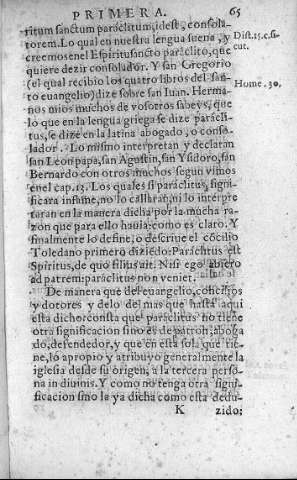 PRIMERA. 65
ritum sanctum paraclitum, idest, consola-
torem. Lo qual en nuestra lengua suena, y
creemos enel Espiritusancto paraclito, que
quiere dezir consolador. Y san Gregorio
(el qual recibio los quatro libros del san-
to euangelio) dize sobre san Iuan. Herma-
nos mios muchos de vosotros sabeys, que
lo que en la lengua griega se dize paracli-
tus, se dize en la latina abogado, o conso-
lador. Lo mismo interpretan y declaran
san Leon papa, san Agustin, san Ysidoro, san
Bernardo con otros muchos segun vimos
enel cap. 13. Los quales si paraclitus, signi-
ficara insine, no lo callaran, ni lo interpre
taran en la manera dicha por la mucha ra-
zon que para ello hauia: como es claro. Y
finalmente lo define, o descriue el cōcilio
Toledano primero diziēdo: Paraclitus est
Spiritus, de quo filius ait. Nisi ego abiero
ad patrem: paraclitus non veniet.
De manera que del euangelio, concilios
y dotores y delo de mas que hasta aqui
esta dicho consta que paraclitus no tiene
otra significacion sino es de patrō, aboga
do, defendedor, y que en esta sola que tie-
ne, lo apropio y atribuyo generalmente la
iglesia desde su origen, a la tercera perso-
na in diuinis. Y como no tenga otra signi-
ficacion sino la ya dicha como esta dedu-
K zido:
Dist. 15. c. si-
cut.
Home. 30.